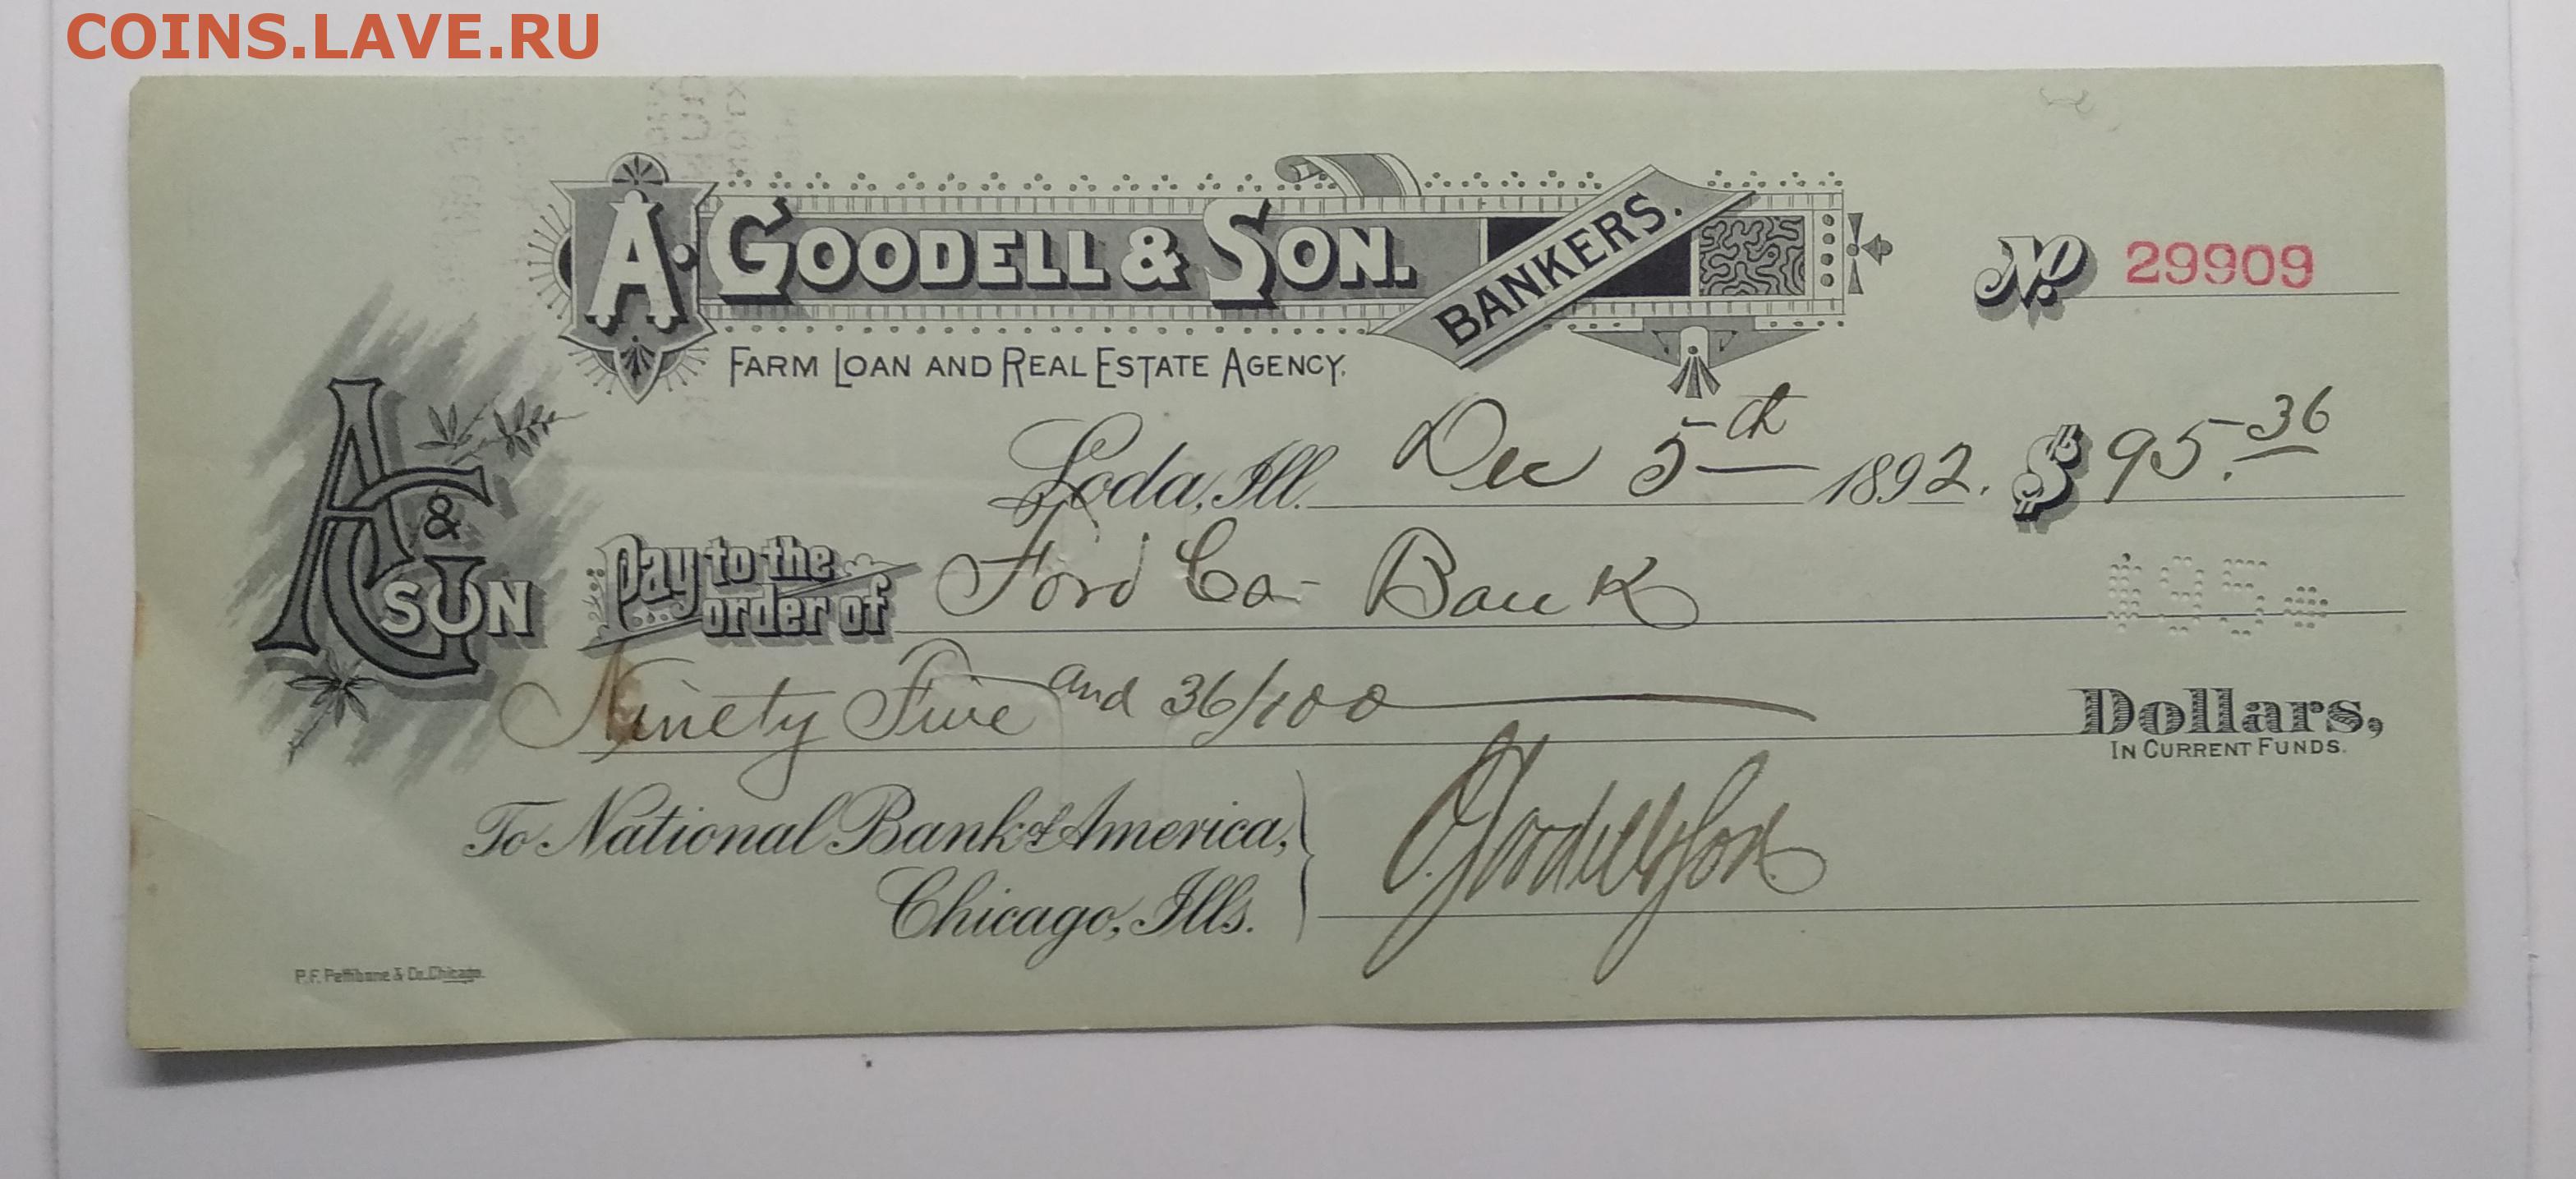 COINS.LAVE.RU
A. GOODELL & SON. BANKERS.
No. 29909
FARM LOAN AND REAL ESTATE AGENCY.
Loda, Ill. Dec 5th 1892. $ 95.36
A G & SON
Pay to the order of Ford Co Bank
$95
Ninety Five and 36/100 Dollars,
IN CURRENT FUNDS.
To National Bank of America,
Chicago, Ills.
Goodell & Son.
P.F. Pettibone & Co. Chicago.